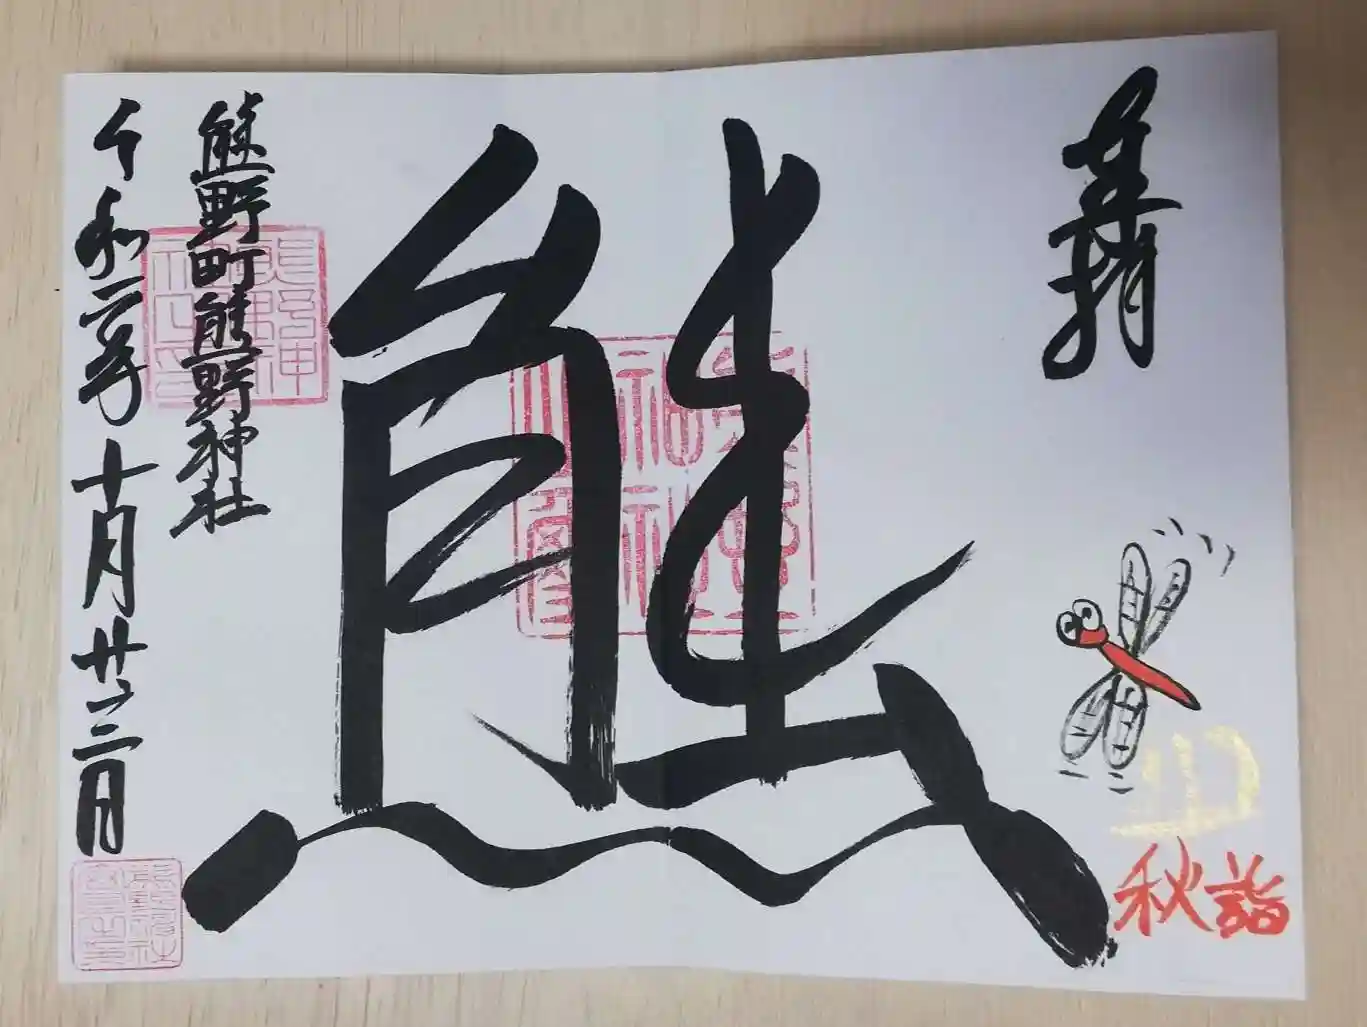 奉拝
熊
秋詣
熊野町熊野神社
令和二年十月廿二日